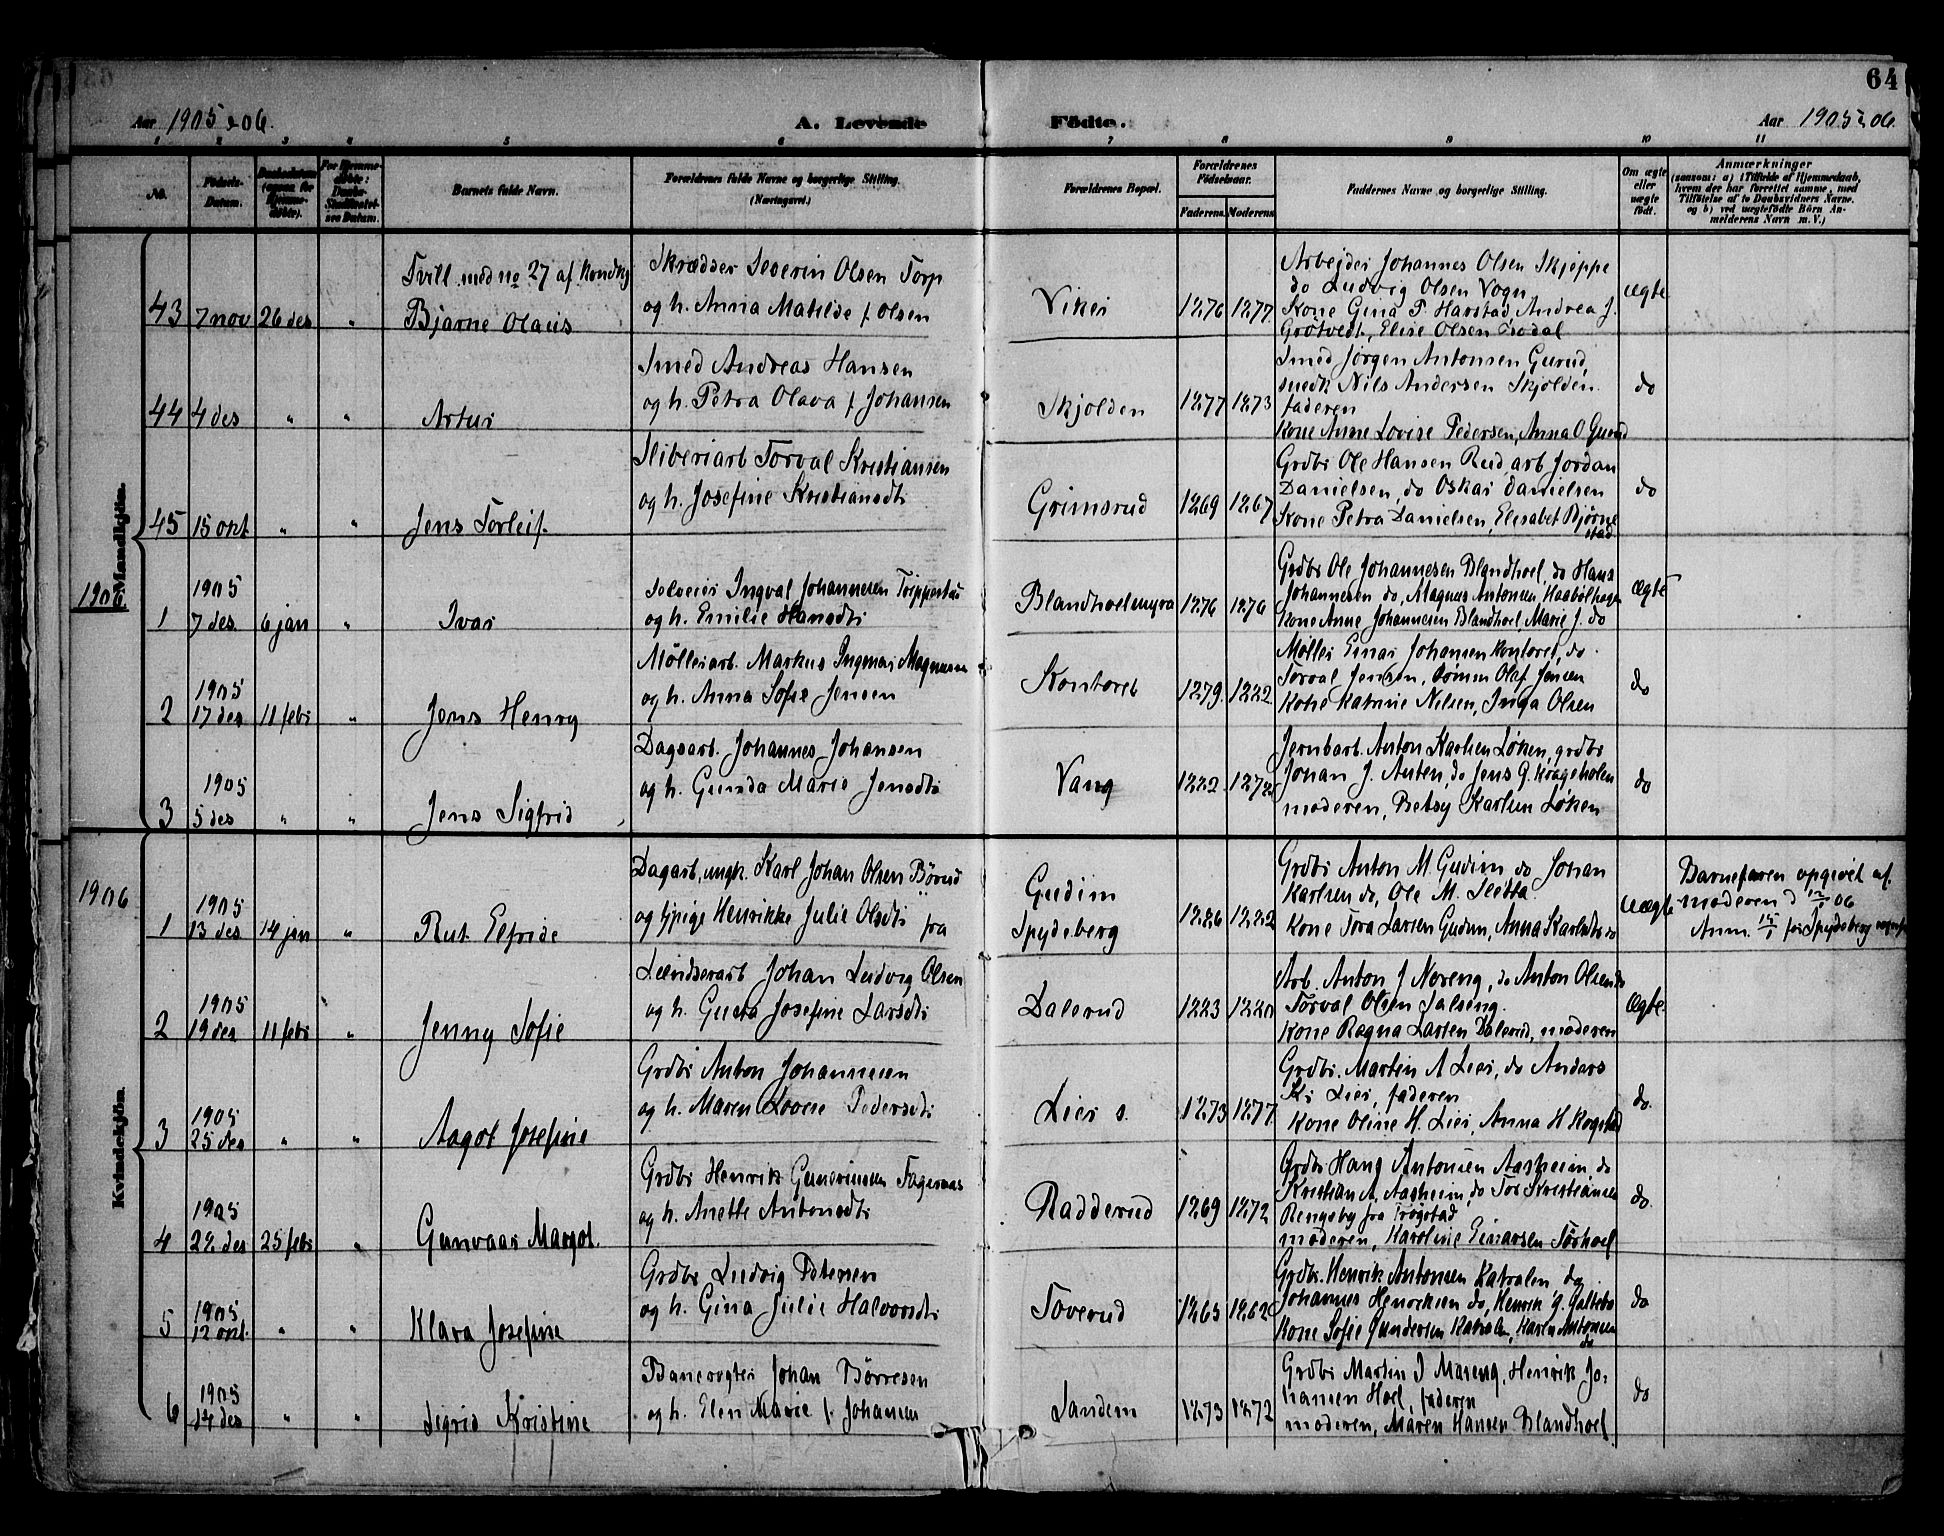 64
Aar 1905 & 06.
A. Levende
Fødte.
Aar 1905 & 06.
1 2 3 4 5 6 7 8 9 10 11
No.
Fødsels-Datum.
Barnets fulde Navn.
Forældrenes fulde Navne og borgerlige Stilling.
(Næringsvei.)
Forældrenes Bopæl.
Forældrenes Fødselsaar.
Faderens. Moderens.
Faddernes Navne og borgerlige Stilling.
Om ægte eller uægte født.
Anmærkninger
(saasom: a) i Tilfælde af Hjemmedaab,
hvem der har forrettet samme, med
Tilføielse af to Daabsvidners Navne.
og b) ved uægtefødte Børn An-
melderens Navn m. V.)
Mandkjøn.
Tvill. med no 27 af
43 7 nov 26 des " Bjarne Olaus
Skrædder Severin Olsen Torp
og h. Anna Matilde f. Olsen
Viker 1876 1877
Arbejder Johannes Olsen Skjøppe
do Ludvig Olsen Vogn
Kone Gina P. Harstad, Andrea J.
Grøtvedt, Elise Olsen
ægte
44 4 des " " Artur
Smed Andreas Hansen
og h. Petra Olava f. Johansen
Skjolden 1877 1873
Smed Jørgen Antonsen Gurud,
snedk Nils Andersen Skjolden
faderen
Kone Anne Lovise Pedersen, Anna O. Gurud
do
45 15 okt " " Jens Torleif
Sliberiarb Torval Kristiansen
og h. Josefine Kristiansdt
Grimsrud 1869 1867
Grdbr Ole Hansen Rud arb Jordan
Danielsen, do Oskar Danielsen
Kone Petra Danielsen, Elisabet Bjørne
stad
do
1906
1905
1 7 des. 6 jan " Ivar
Selveier Ingval Johannesen
og h. Emilie Hansdt
Blandhoelmyra 1876 1876
Grdbr Ole Johannesen Blandhoel, do Hans
Johannesen do, Magnus Antonsen
Kone Anne Johannesen Blandhoel, Marie J. do
ægte
1905
2 17 des 11 febr " Jens Henry
Møllerarb. Markus Ingemar Magnusen
og h. Anna Sofie Jensen
Kontoret 1879. 1882
Møller Einar Johansen Kontoret, do.
Torval Jensen, Olaf Jensen
Kone Katrine Nilsen, Inga Olsen
do
1905
3 5 des " " Jens Sigfrid
Dagsarb. Johannes Johansen
og h. Gunda Marie Jensdt
Vang 1882 1872
Jernbarb. Anton Karlsen Løken, grdbr
Johan J. Anten, do Jens G. Krageholen
moderen, Betsy Karlsen Løken
do
1906
Kvindekjøn.
1905
1 13 des 14 jan " Rut Elfride
Dagarb, ungk. Karl Johan Olsen Børud
og tjpige Henrikke Julie Olsdt fra
Gudim
Spydeberg 1886 1882
Grdbr Anton M. Gudim do Johan
Karlsen do, Ole M. Sletta
Kone Tora Larsen Gudim, Anna Karlsdt do
Uægte
Barnefaren opgivet af
moderen d 06
Anm. for Spydeberg
1905
2 19 des 11 febr " Jenny Sofie
Lændserarb Johan Ludvig Olsen
og h. Gusta Josefine Larsdt
Dalerud 1883 1880
Arb. Anton J Noreng, do Anton Olsen do
Torval Olsen Salseng.
Kone Ragna Larsen Dalerud, moderen
Ægte
1905
3 25 des " " Aagot Josefine
Grdbr Anton Johannesen
og h. Maren Lovise Pedersdt
Lier s. 1873 1877
Grdbr. Martin A Lier, do Anders
Kr Lier, faderen
Kone Oline H. Lier, Anna H Rogstad
do.
1905
4 28 des 25 febr " Gunvaar Margot.
Grdbr Henrik Guneriusen Fagernas
og h. Anette Antonsdt
Radderud 1869 1872
Grdbr Hans Antonsen Aasheim do
Kristian A. Aasheim, do Tor Kristiansen
Rengsby fra Trøgstad
moderen, Karoline Einarsen Tørhoel
do.
1905
5 12 okt. " " Klara Josefine
Grdbr Ludvig Petersen
og h. Gina Julie Halvorsdt
Toverud 1865 1862
Grdbr. Henrik Antonsen Katralen do
Johannes Henriksen do, Henrik G.
Kone Sofie Gundersen Katralen, Karen Antonsen
do
do
1905
6 14 des " " Sigrid Kristine
Banevogter Johan Børresen
og h. Elen Marie f. Johansen
Sandem 1873 1872
Grdbr Martin J Mareng, Henrik Jo-
hansen Hoel, faderen
moderen, Maren Hansen Blandhoel
do